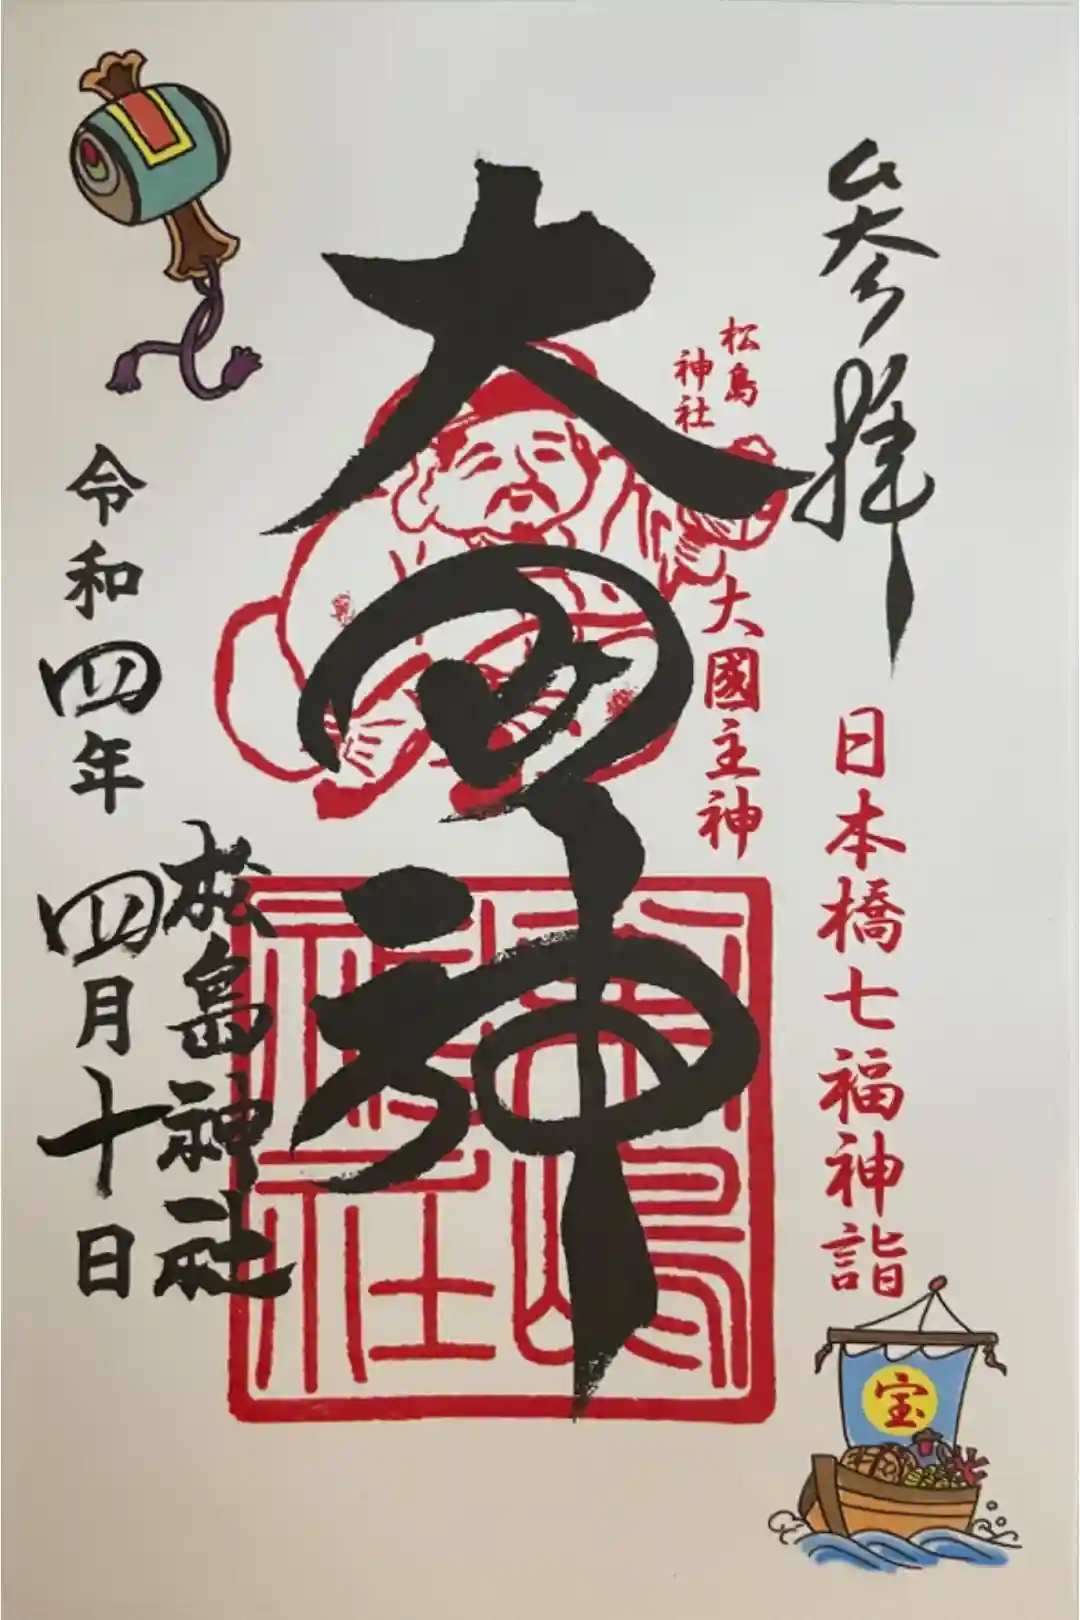 参拝
日本橋七福神詣
宝
松島
神社
大國主神
大国神
松島神社
令和四年四月十日